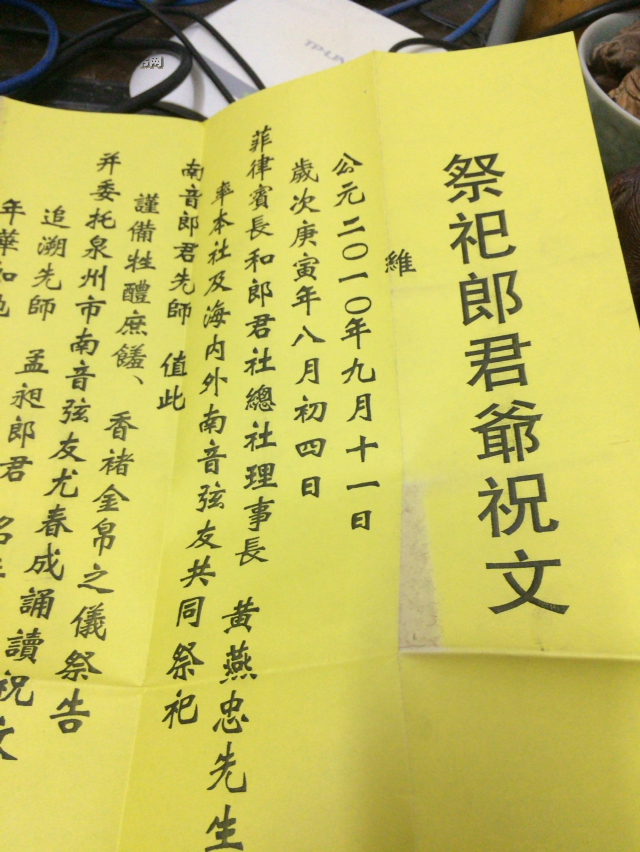 祭祀郎君爺祝文
維
公元二〇一〇年九月十一日
歲次庚寅年八月初四日
菲律賓長和郎君社總社理事長 黃燕忠先生
率本社及海内外南音弦友共同祭祀
南音郎君先師 值此
謹備牲醴庶饈、香褚金帛之儀祭告
并委托泉州市南音弦友尤春成誦讀祝文
追溯先師 孟昶郎君
年華
TP-LINK